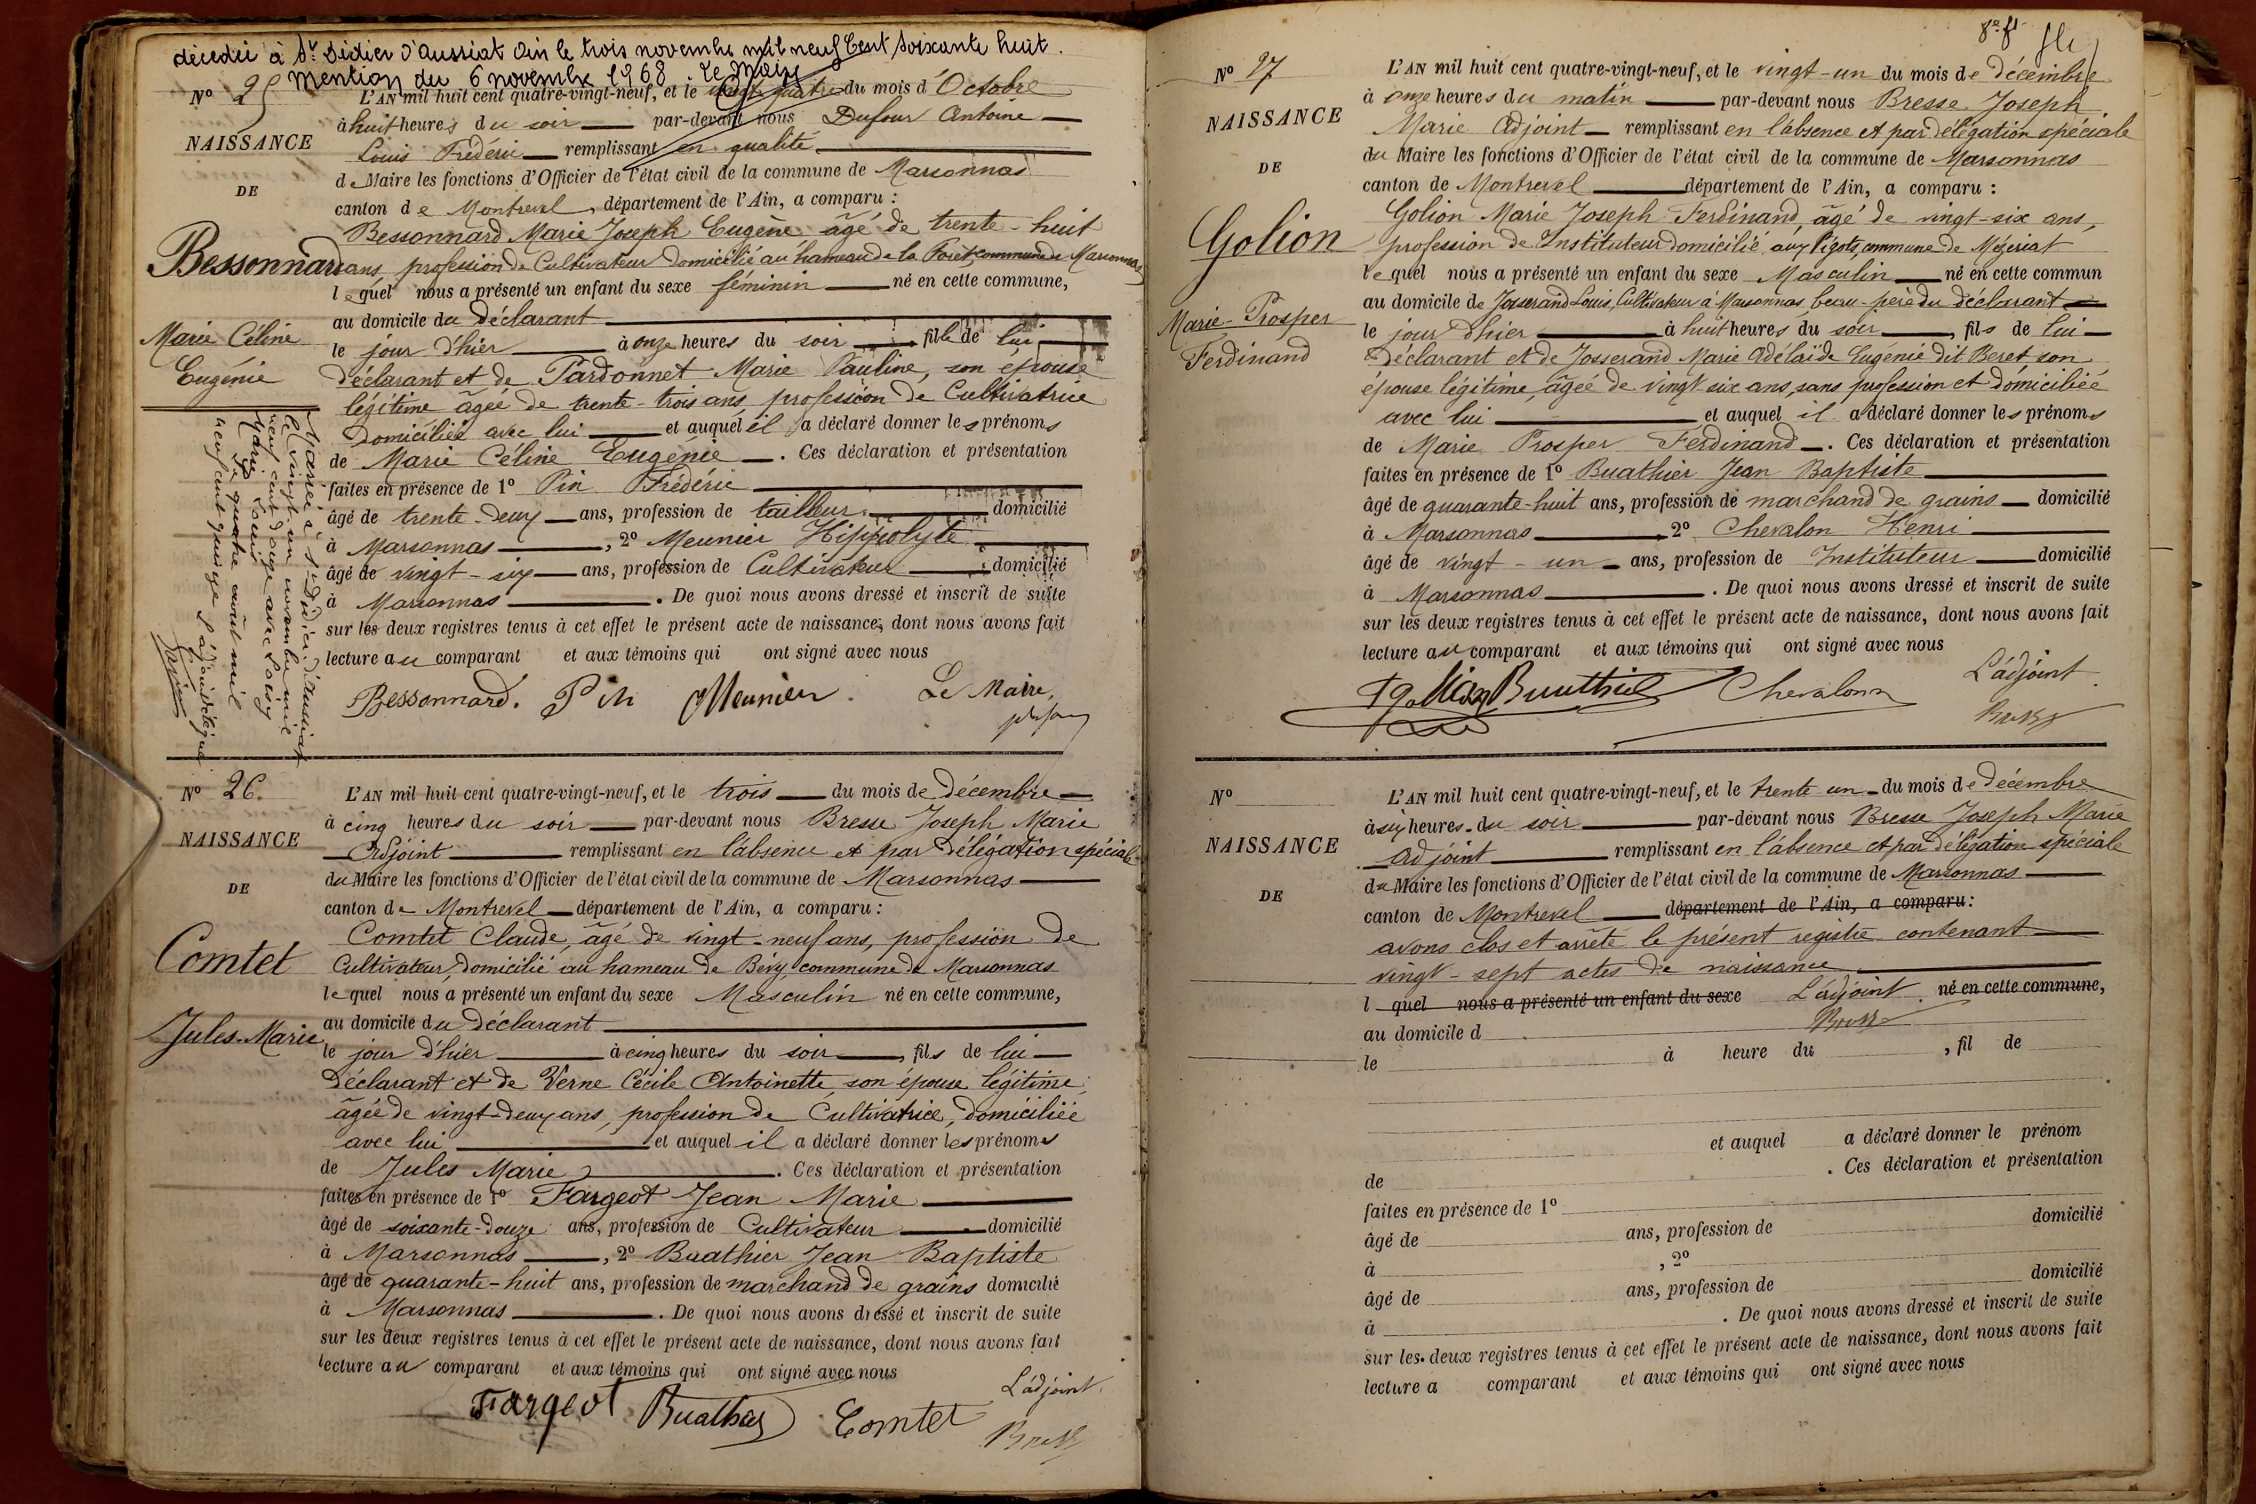 décédée à St Didier d'Aussiat Ain le trois novembre mil neuf cent soixante huit.
Mention du 6 novembre 1968. Le Maire
No 25
NAISSANCE
DE
Bessonnard
Marie Céline
Eugénie
Mariée à St Didier d'Aussiat
le vingt un novembre mil
neuf cent douze avec Loisy
Marie Louis
Le quatre août mil
neuf cent quinze L'adjoint délégué
L'AN mil huit cent quatre-vingt-neuf, et le vingt quatre du mois d'Octobre
à huit heures du soir par-devant nous Dufour Antoine
Louis Frédéric remplissant en qualité
de Maire les fonctions d'Officier de l'état civil de la commune de Marsonnas
canton de Montrevel, département de l'Ain, a comparu :
Bessonnard Marie Joseph Eugène âgé de trente-huit
ans, profession de Cultivateur domicilié au hameau de la Forêt, commune de Marsonnas
lequel nous a présenté un enfant du sexe féminin né en cette commune,
au domicile du déclarant
le jour d'hier à onze heures du soir, fille de lui
déclarant et de Pardonnet Marie Pauline, son épouse
légitime âgée de trente-trois ans, profession de Cultivatrice
domiciliée avec lui et auquel il a déclaré donner les prénoms
de Marie Céline Eugénie. Ces déclaration et présentation
faites en présence de 1o Pin Frédéric
âgé de trente-deux ans, profession de tailleur domicilié
à Marsonnas, 2o Meunier Hippolyte
âgé de vingt-six ans, profession de Cultivateur domicilié
à Marsonnas. De quoi nous avons dressé et inscrit de suite
sur les deux registres tenus à cet effet le présent acte de naissance, dont nous avons fait
lecture au comparant et aux témoins qui ont signé avec nous
Bessonnard. Pin Meunier. Le Maire,
No 26.
NAISSANCE
DE
Comtet
Jules-Marie
L'AN mil huit cent quatre-vingt-neuf, et le trois du mois de Décembre
à cinq heures du soir par-devant nous Bresse Joseph Marie
Adjoint remplissant en l'absence et par délégation spéciale
du Maire les fonctions d'Officier de l'état civil de la commune de Marsonnas
canton de Montrevel département de l'Ain, a comparu :
Comtet Claude, âgé de vingt-neuf ans, profession de
Cultivateur, domicilié au hameau de Bévy commune de Marsonnas
lequel nous a présenté un enfant du sexe Masculin né en cette commune,
au domicile du déclarant
le jour d'hier à cinq heures du soir, fils de lui
Déclarant et de Verne Cécile Antoinette son épouse légitime
âgée de vingt-deux ans, profession de Cultivatrice, domiciliée
avec lui et auquel il a déclaré donner les prénoms
de Jules Marie. Ces déclaration et présentation
faites en présence de 1o Fargeot Jean Marie
âgé de soixante-douze ans, profession de Cultivateur domicilié
à Marsonnas, 2o Buathier Jean Baptiste
âgé de quarante-huit ans, profession de marchand de grains domicilié
à Marsonnas. De quoi nous avons dressé et inscrit de suite
sur les deux registres tenus à cet effet le présent acte de naissance, dont nous avons fait
lecture au comparant et aux témoins qui ont signé avec nous
L'adjoint.
Fargeot Buathier Comtet Bresse
No 27
NAISSANCE
DE
Golion
Marie-Prosper
Ferdinand
L'AN mil huit cent quatre-vingt-neuf, et le vingt-un du mois de décembre
à onze heures du matin par-devant nous Bresse Joseph
Marie Adjoint remplissant en l'absence et par délégation spéciale
du Maire les fonctions d'Officier de l'état civil de la commune de Marsonnas
canton de Montrevel département de l'Ain, a comparu :
Golion Marie Joseph Ferdinand, âgé de vingt-six ans,
profession de Instituteur domicilié aux Pigots, commune de Mézeriat
lequel nous a présenté un enfant du sexe Masculin né en cette commun
au domicile de Josserand Louis, Cultivateur à Marsonnas, beau-père du déclarant
le jour d'hier à huit heures du soir, fils de lui
déclarant et de Josserand Marie Adélaïde Eugénie dit Beret son
épouse légitime, âgée de vingt-six ans, sans profession et domiciliée
avec lui et auquel il a déclaré donner les prénoms
de Marie Prosper Ferdinand. Ces déclaration et présentation
faites en présence de 1o Buathier Jean Baptiste
âgé de quarante-huit ans, profession de marchand de grains domicilié
à Marsonnas, 2o Chevalon Henri
âgé de vingt-un ans, profession de Instituteur domicilié
à Marsonnas. De quoi nous avons dressé et inscrit de suite
sur les deux registres tenus à cet effet le présent acte de naissance, dont nous avons fait
lecture au comparant et aux témoins qui ont signé avec nous
L'adjoint.
Golion Buathier Chevalon Bresse
No
NAISSANCE
DE
L'AN mil huit cent quatre-vingt-neuf, et le trente un du mois de décembre
à six heures du soir par-devant nous Bresse Joseph Marie
adjoint remplissant en l'absence et par délégation spéciale
du Maire les fonctions d'Officier de l'état civil de la commune de Marsonnas
canton de Montrevel département de l'Ain, a comparu :
avons clos et arrêté le présent registre contenant
vingt-sept actes de naissance
l quel nous a présenté un enfant du sexe L'adjoint né en cette commune,
au domicile d Bresse
le à heure du , fil de
et auquel a déclaré donner le prénom
de . Ces déclaration et présentation
faites en présence de 1o
âgé de ans, profession de domicilié
à , 2o
âgé de ans, profession de domicilié
à . De quoi nous avons dressé et inscrit de suite
sur les deux registres tenus à cet effet le présent acte de naissance, dont nous avons fait
lecture a comparant et aux témoins qui ont signé avec nous